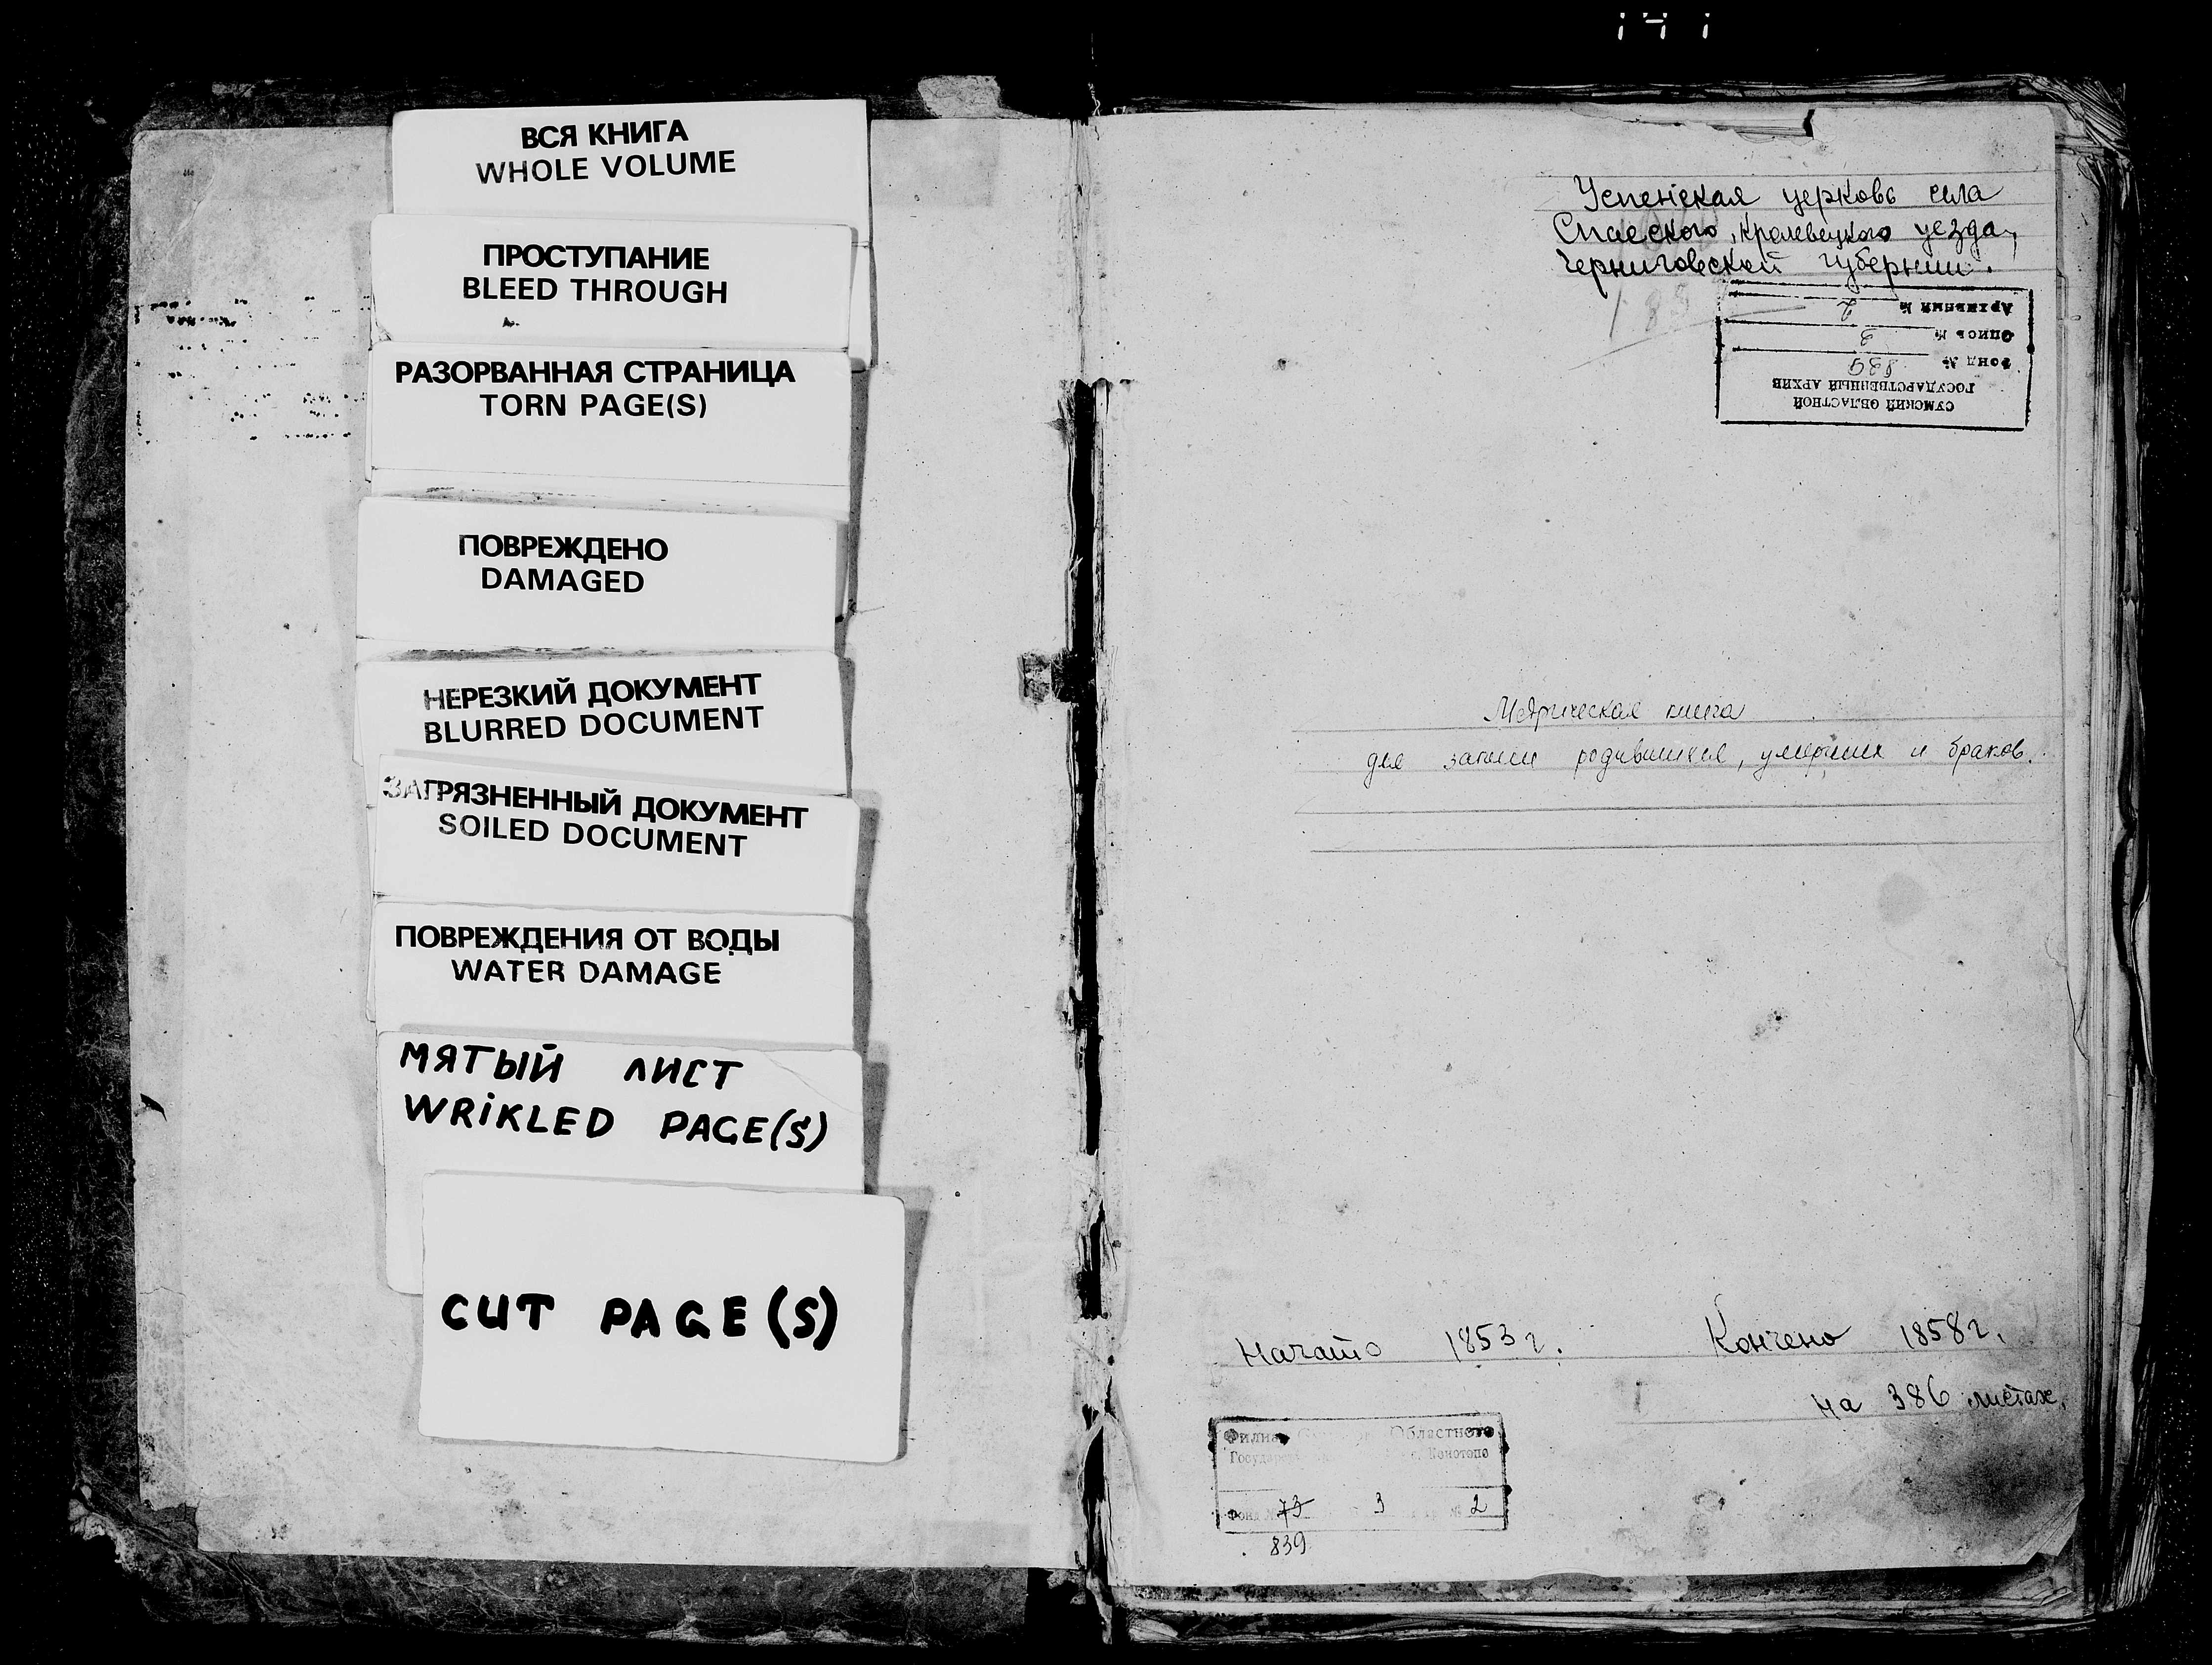 ВСЯ КНИГА
WHOLE VOLUME
ПРОСТУПАНИЕ
BLEED THROUGH
РАЗОРВАННАЯ СТРАНИЦА
TORN PAGE(S)
ПОВРЕЖДЕНО
DAMAGED
НЕРЕЗКИЙ ДОКУМЕНТ
BLURRED DOCUMENT
ЗАГРЯЗНЕННЫЙ ДОКУМЕНТ
SOILED DOCUMENT
ПОВРЕЖДЕНИЯ ОТ ВОДЫ
WATER DAMAGE
МЯТЫЙ ЛИСТ
WRIKLED PAGE(S)
CUT PAGE(S)
Успенская церковь села
Спасского, Кролевецкого уезда,
Черниговской губернии.
СУМСКИЙ ОБЛАСТНОЙ
ГОСУДАРСТВЕННЫЙ АРХИВ
Фонд № 839
Опись № 3
Архивный № 2
Метрическая книга
для записи родившихся, умерших и браков.
Начато 1853 г. Кончено 1858 г.
на 386 листах.
Филиал Областного
г. Конотопе
Фонд № 73 3 2
839